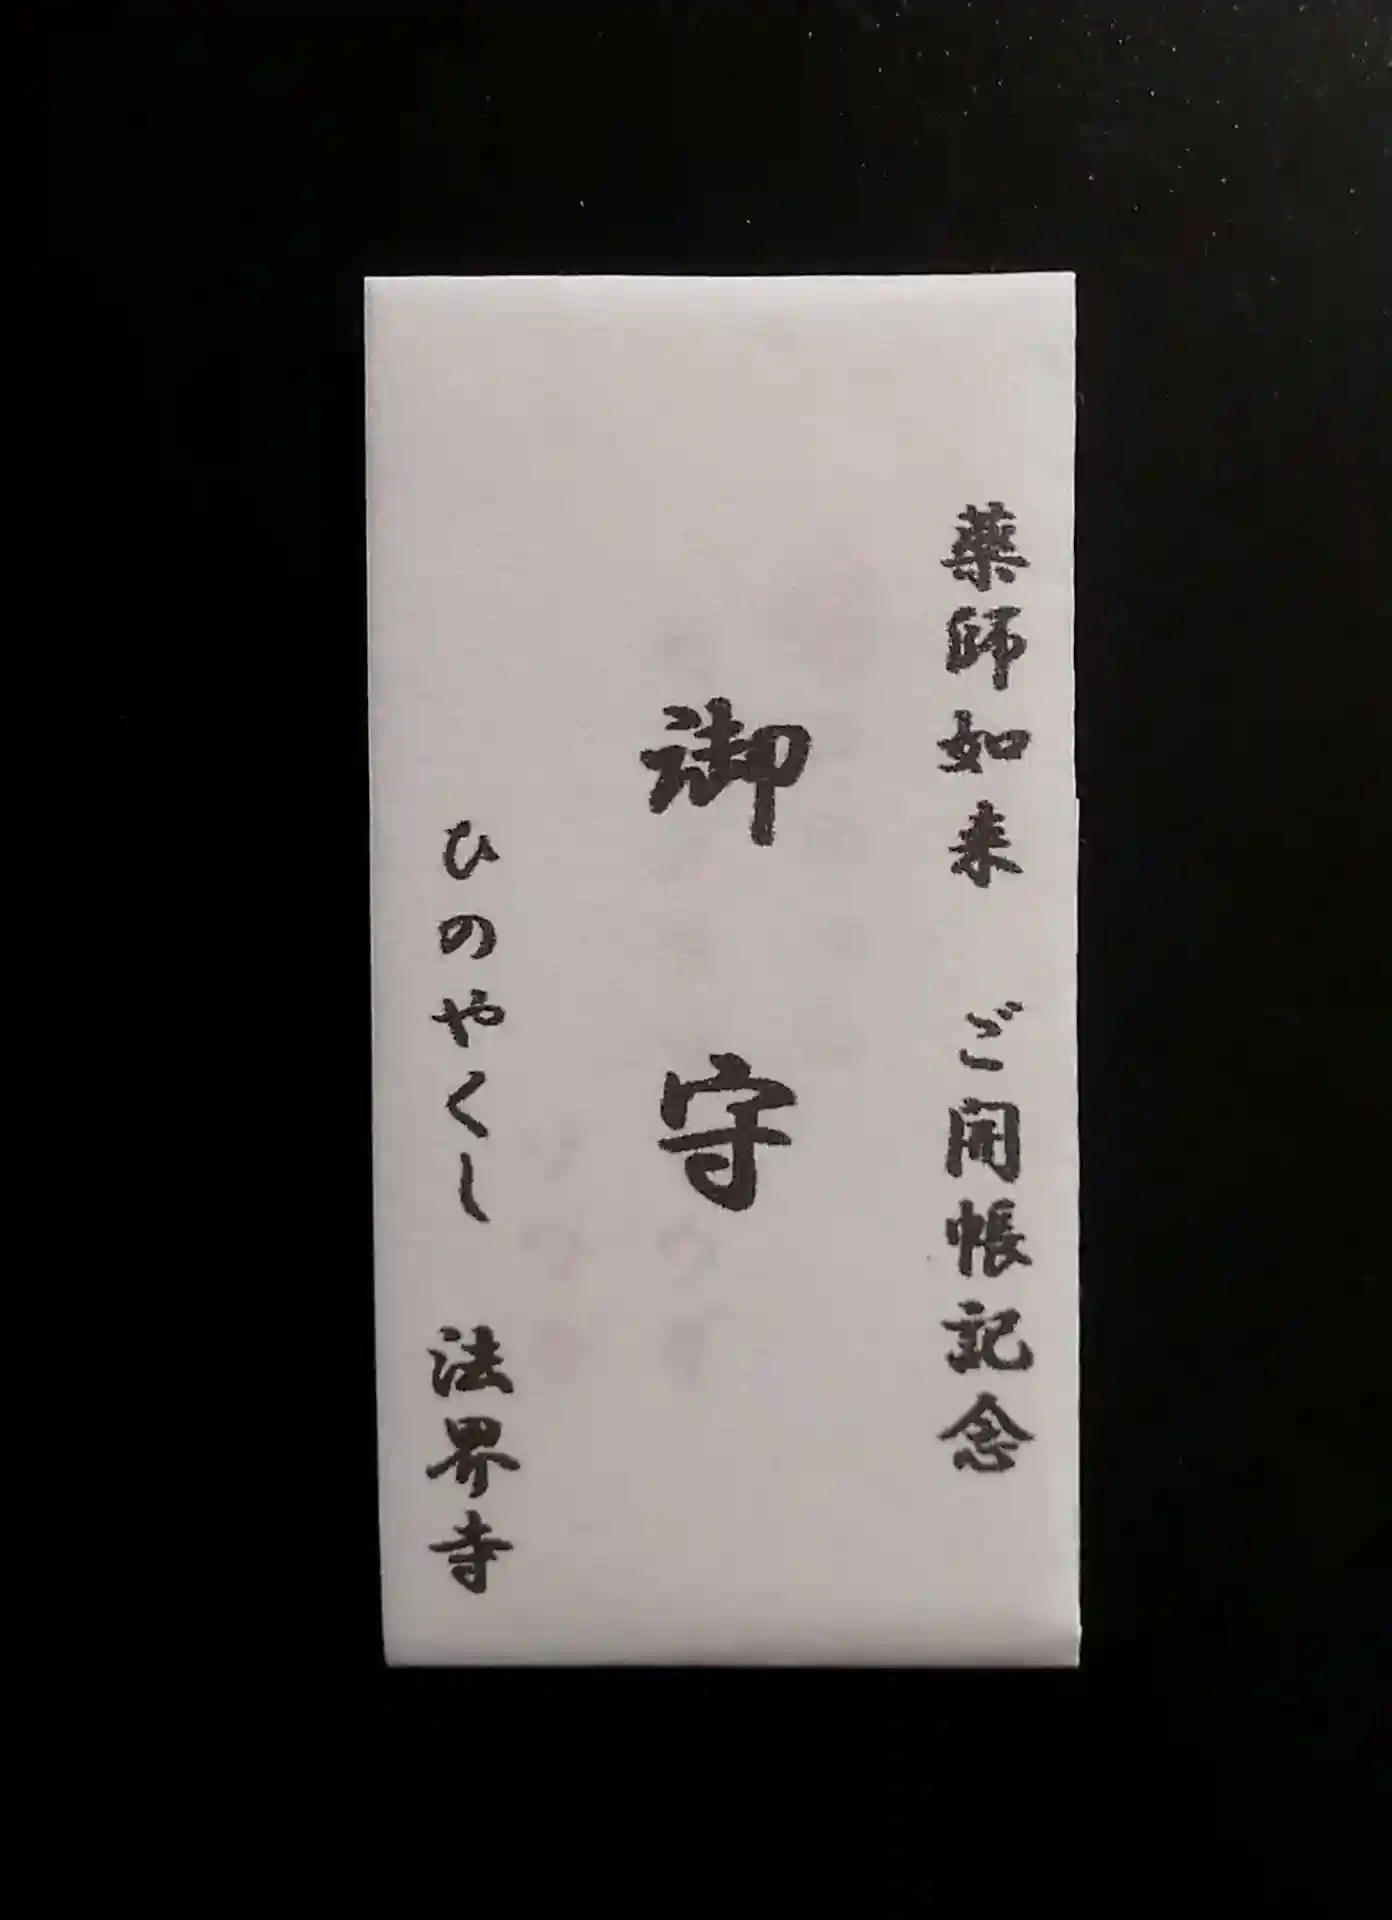 薬師如来　ご開帳記念
御守
ひのやくし　法界寺